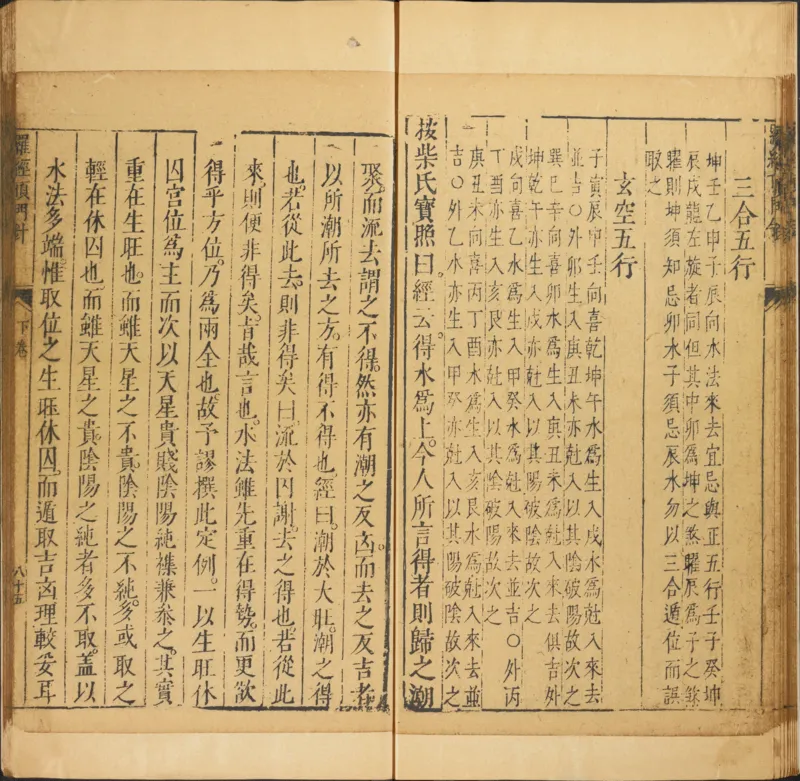 三合五行
坤壬乙申子辰向水法來去宜忌與正五行壬子癸坤
辰戌龍左旋者同但其中卯為坤之煞曜辰為子之煞
曜則坤須知忌卯水子須忌辰水勿以三合遁位而誤
取之
玄空五行
子寅辰甲壬向喜乾坤午水為生入戌水為尅入來去
並吉○外卯生入庚丑未亦尅入以其陰破陽故次之
巽巳辛向喜卯水為生入庚丑未為尅入來去俱吉外
坤乾午亦生入戌亦尅入以其陽破陰故次之
戌向喜乙水為生入甲癸水為尅入來去並吉○外丙
丁酉亦生入亥艮亦尅入以其陰破陽故次之
庚丑未向喜丙丁酉水為生入亥艮水為尅入來去並
吉○外乙水亦生入甲癸亦尅入以其陽破陰故次之
按柴氏寶照曰。經云。得水為上。今人所言得者則歸之潮
聚。而流去謂之不得。然亦有潮之反凶。而去之反吉者
以所潮所去之方。有得不得也。經曰。潮於大旺。潮之得
也。若從此去。則非得矣。曰。流於囚謝。去之得也。若從此
來。則便非得矣。旨哉言也。水法雖先重在得勢。而更欲
得乎方位。乃為兩全也。故予謬撰此定例。一以生旺休
囚宮位為主而次以天星貴賤陰陽純襍兼叅之。其實
重在生旺也。而雖天星之不貴。陰陽之不純。多或取之
輕在休囚也。而雖天星之貴。陰陽之純者多不取。蓋以
水法多端惟取位之生旺休囚。而遁取吉凶理較妥耳
羅經頂門針
下卷
八十五